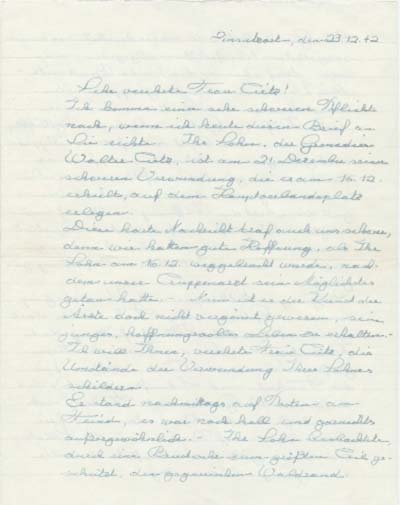 den 23.12.42
Sehr verehrte Frau Citz!
Ich komme einer sehr schweren Pflicht
nach, wenn ich heute diesen Brief an
Sie richte. Ihr Sohn, der Grenadier
Walter Citz, ist am 21. Dezember seiner
schweren Verwundung, die er am 16.12.
erhielt, auf dem Hauptverbandsplatz
erlegen.
Diese harte Nachricht traf auch uns schwer,
denn wir hatten gute Hoffnung, als Ihr
Sohn am 16.12. weggebracht wurde, nach-
dem unser Truppenarzt sein Möglichstes
getan hatte. - Nun ist es der Kunst der
Ärzte doch nicht vergönnt gewesen, sein
junges, hoffnungsvolles Leben zu erhalten. -
Ich will Ihnen, verehrte Frau Citz, die
Umstände der Verwundung Ihres Sohnes
schildern.
Er stand nachmittags auf Posten am
Feind, es war noch hell und garnichts
außergewöhnliches. - Ihr Sohn beobachtete,
durch eine zum größten Teil ge-
schützt, den gegnerischen Waldrand.